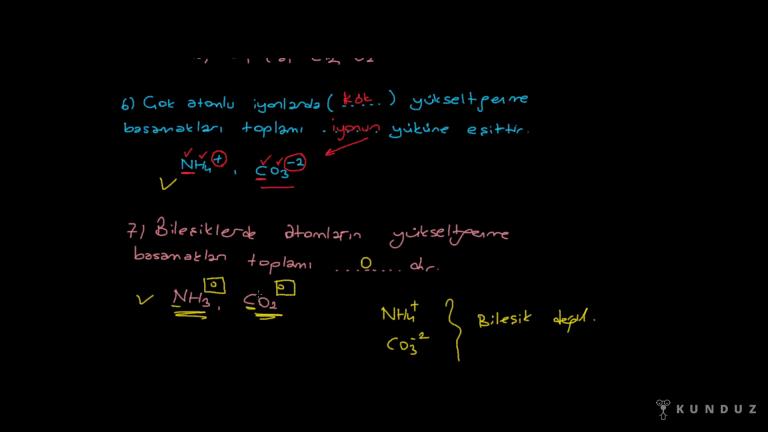 6) Çok atomlu iyonlarda (kök) yükseltgenme
basamakları toplamı iyonun yüküne eşittir.
NH₄⁺, CO₃⁻²
7) Bileşiklerde atomların yükseltgenme
basamakları toplamı ...0... dır.
NH₃, CO₂
0 0
NH₄⁺
CO₃⁻²
Bileşik değil.
KUNDUZ